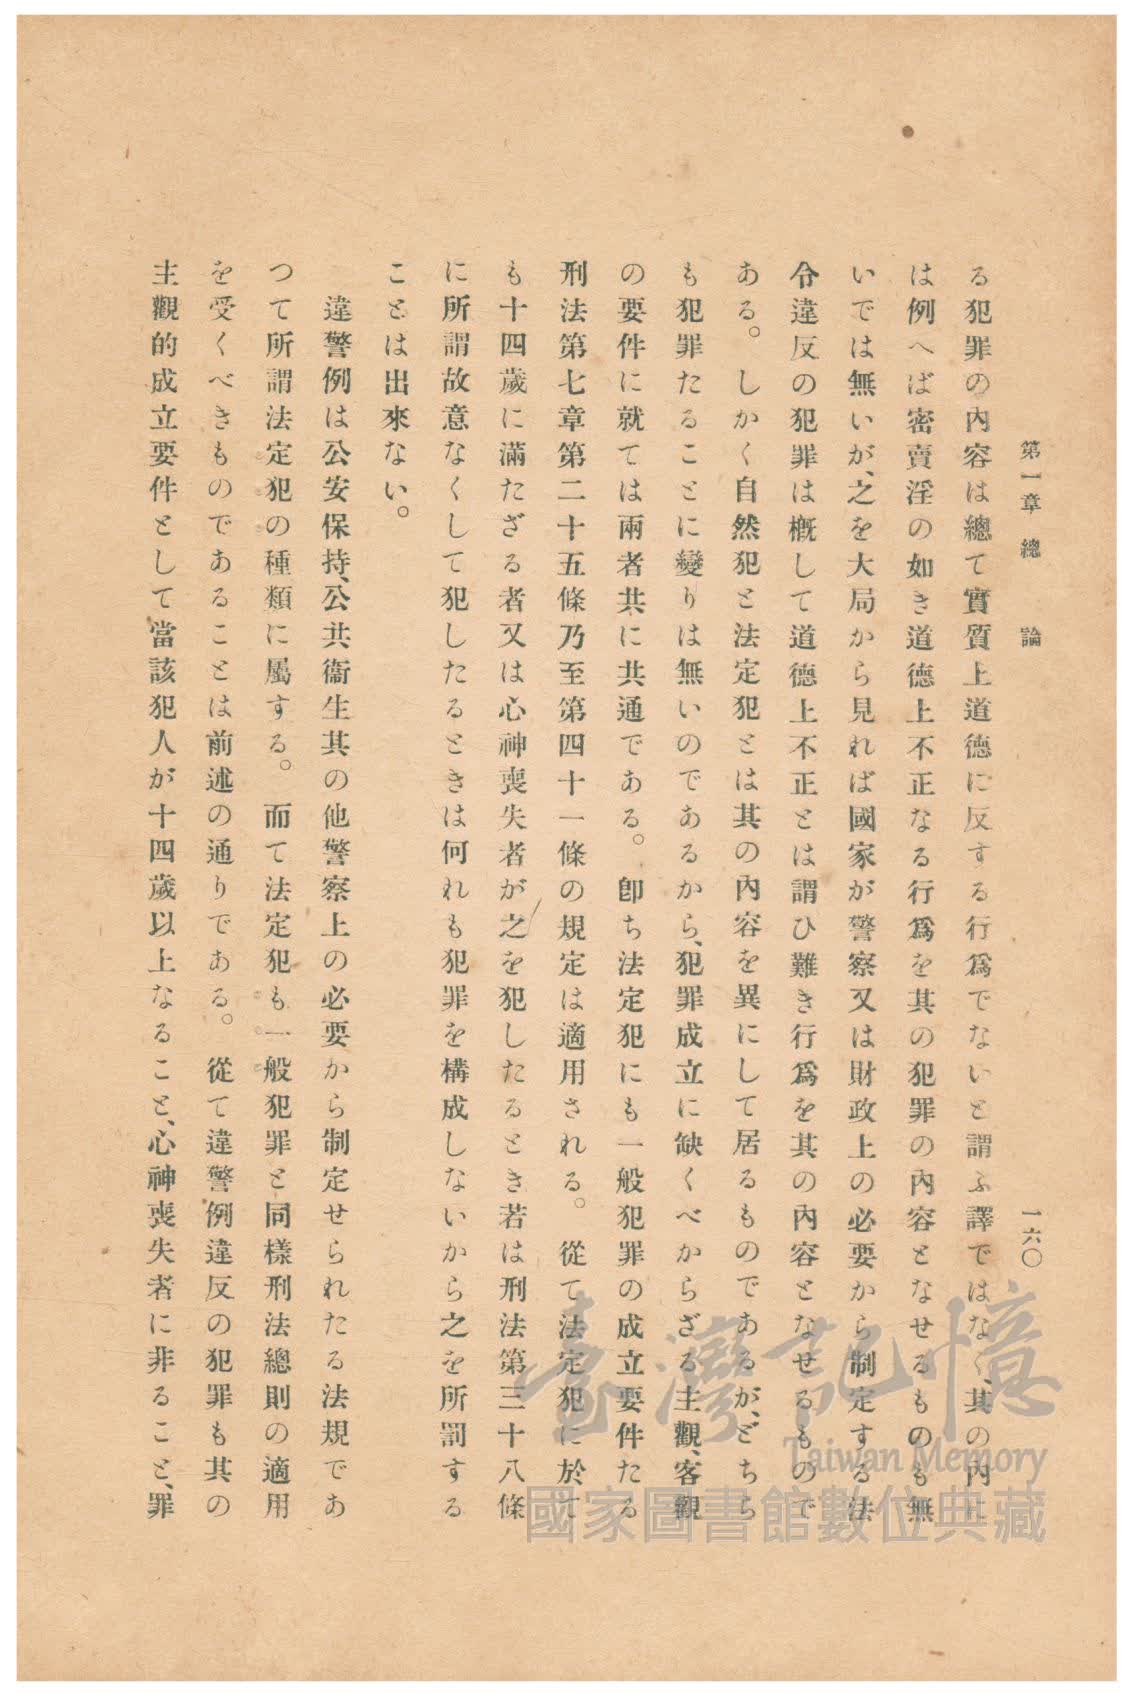 第一章 總 論 一六〇
る犯罪の內容は總て實質上道德に反する行爲でないと謂ふ譯ではなく、其の內に
は例へば密賣淫の如き道德上不正なる行爲を其の犯罪の內容となせるものも無
いでは無いが、之を大局から見れば國家が警察又は財政上の必要から制定する法
令違反の犯罪は槪して道德上不正とは謂ひ難き行爲を其の內容となせるもので
ある。しかく自然犯と法定犯とは其の內容を異にして居るものであるが、どちら
も犯罪たることに變りは無いのであるから、犯罪成立に缺くべからざる主觀、客觀
の要件に就ては兩者共に共通である。卽ち法定犯にも一般犯罪の成立要件たる
刑法第七章第二十五條乃至第四十一條の規定は適用される。從て法定犯に於て
も十四歲に滿たざる者又は心神喪失者が之を犯したるとき若は刑法第三十八條
に所謂故意なくして犯したるときは何れも犯罪を構成しないから之を所罰する
ことは出來ない。
違警例は公安保持、公共衞生其の他警察上の必要から制定せられたる法規であ
つて所謂法定犯の種類に屬する。而て法定犯も一般犯罪と同樣刑法總則の適用
を受くべきものであることは前述の通りである。從て違警例違反の犯罪も其の
主觀的成立要件として當該犯人が十四歲以上なること、心神喪失者に非ること、罪
臺灣記憶
Taiwan Memory
國家圖書館數位典藏